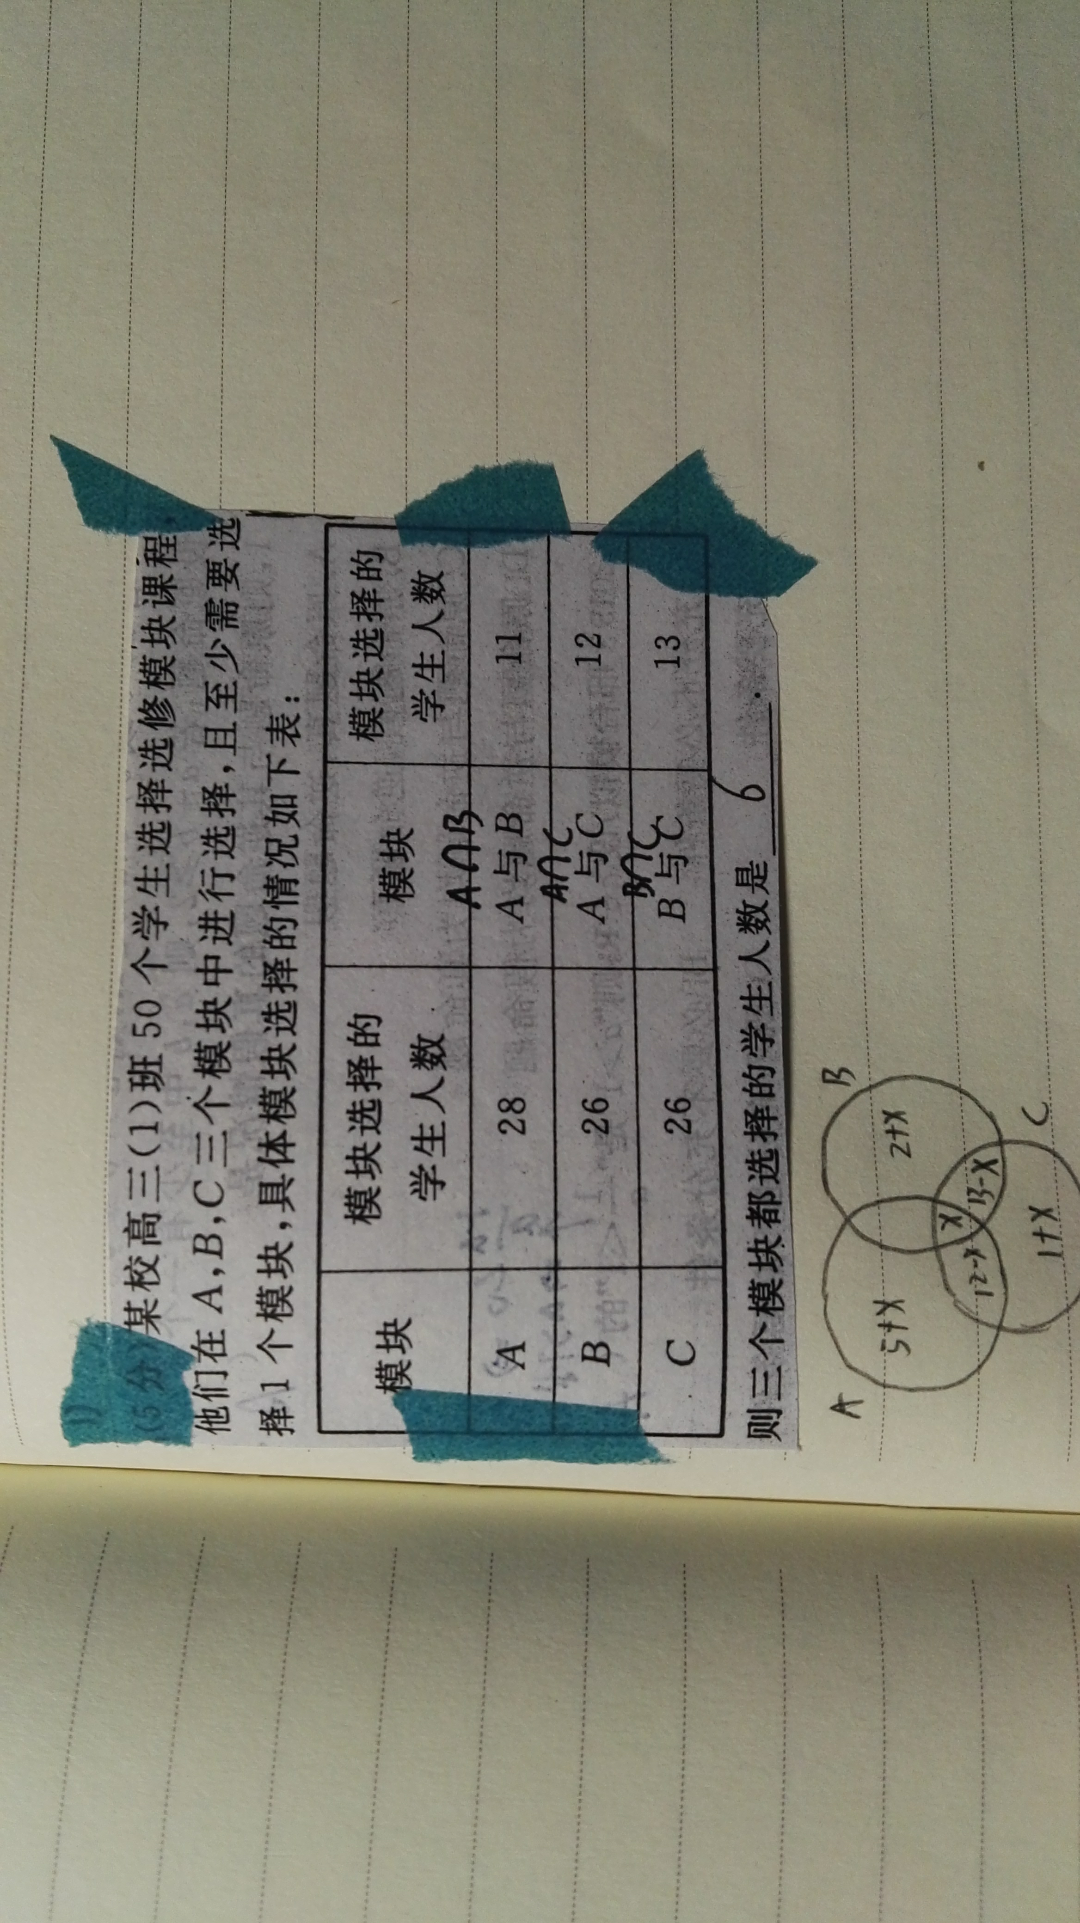 1)
(5分)某校高三(1)班50个学生选择选修模块课程,
他们在A,B,C三个模块中进行选择,且至少需要选
择1个模块,具体模块选择的情况如下表:
模块 模块选择的学生人数 模块 模块选择的学生人数
A∩B
A 28 A与B 11
A∩C
B 26 A与C 12
B∩C
C 26 B与C 13
则三个模块都选择的学生人数是 6 .
A B
5+x 2+x
12-x x 13-x
1+x C